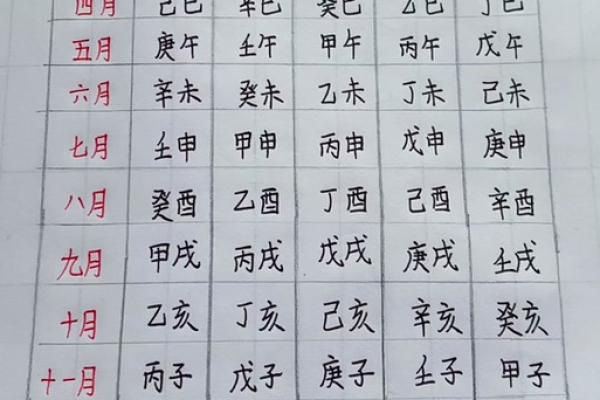 四月 己巳 辛巳 癸巳 乙巳 丁巳
五月 庚午 壬午 甲午 丙午 戊午
六月 辛未 癸未 乙未 丁未 己未
七月 壬申 甲申 丙申 戊申 庚申
八月 癸酉 乙酉 丁酉 己酉 辛酉
九月 甲戌 丙戌 戊戌 庚戌 壬戌
十月 乙亥 丁亥 己亥 辛亥 癸亥
十一月 丙子 戊子 庚子 壬子 甲子